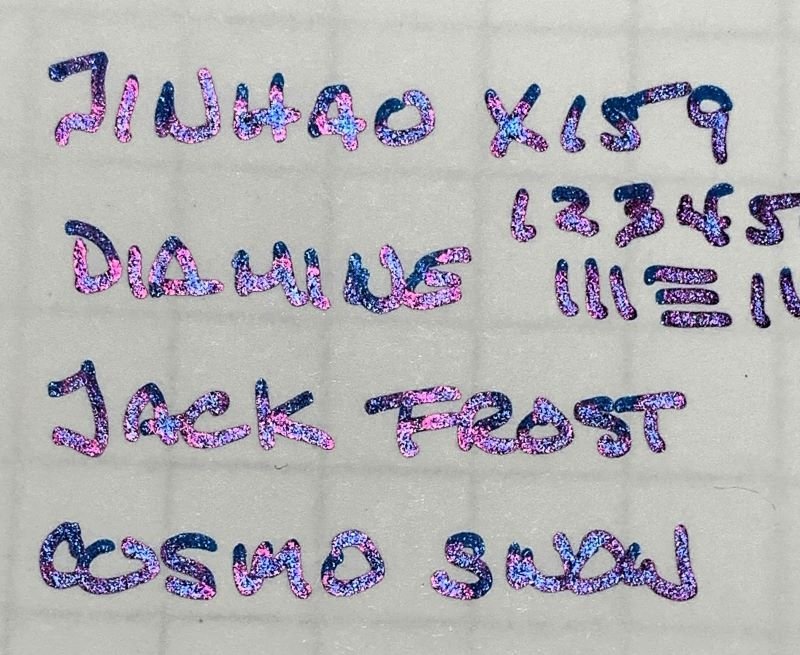 JINHAO X159
1 2 3 4 5
DIAMINE
JACK FROST
COSMO SNOW